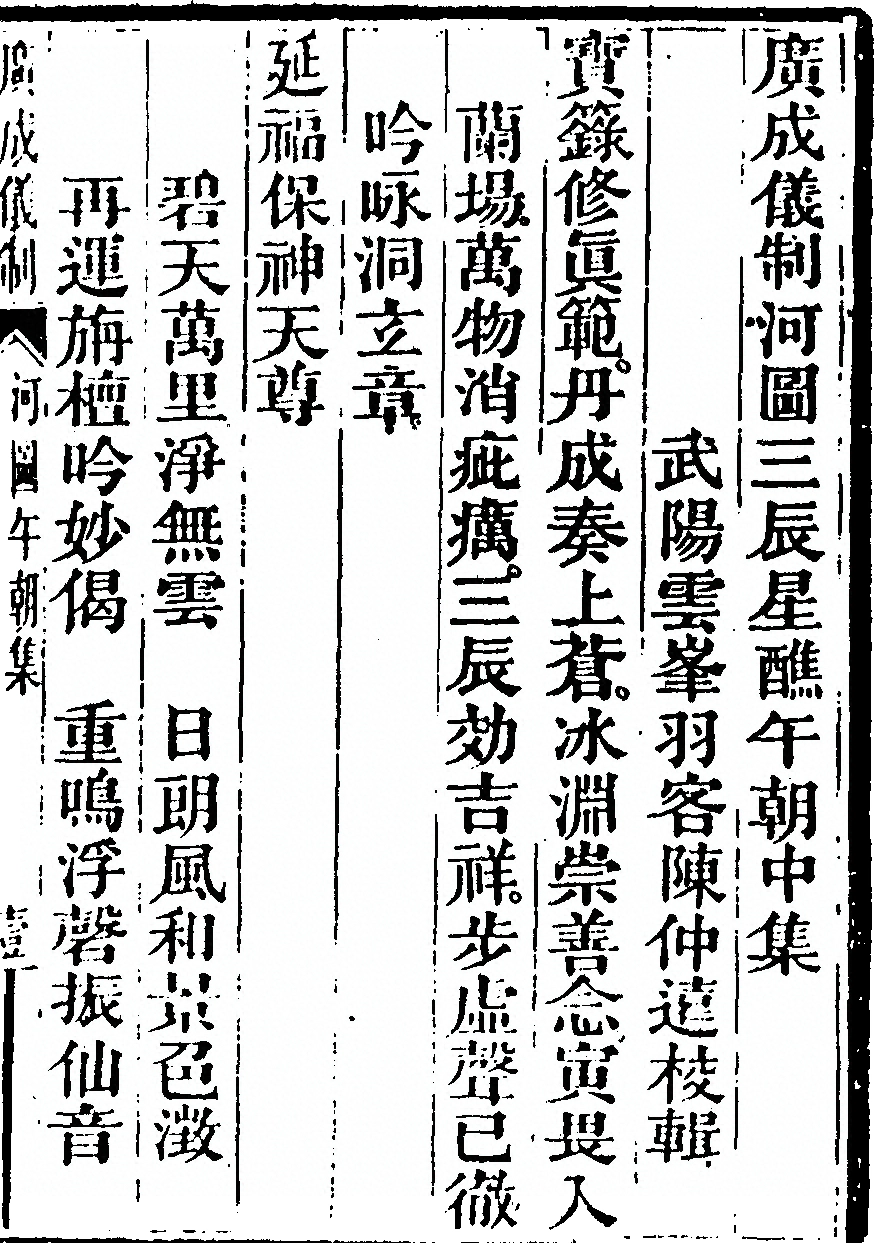 廣成儀制河圖三辰星醮午朝中集
武陽雲峯羽客陳仲遠校輯
寶籙修眞範。丹成奏上蒼。冰淵崇善念寅畏入
蘭場。萬物消疵癘。三辰効吉祥。步虛聲已徹
吟咏洞玄章。
延福保神天尊
碧天萬里淨無雲　日朗風和景色澂
再運旃檀吟妙偈　重鳴浮磬振仙音
廣成儀制　河圖午朝集　壹